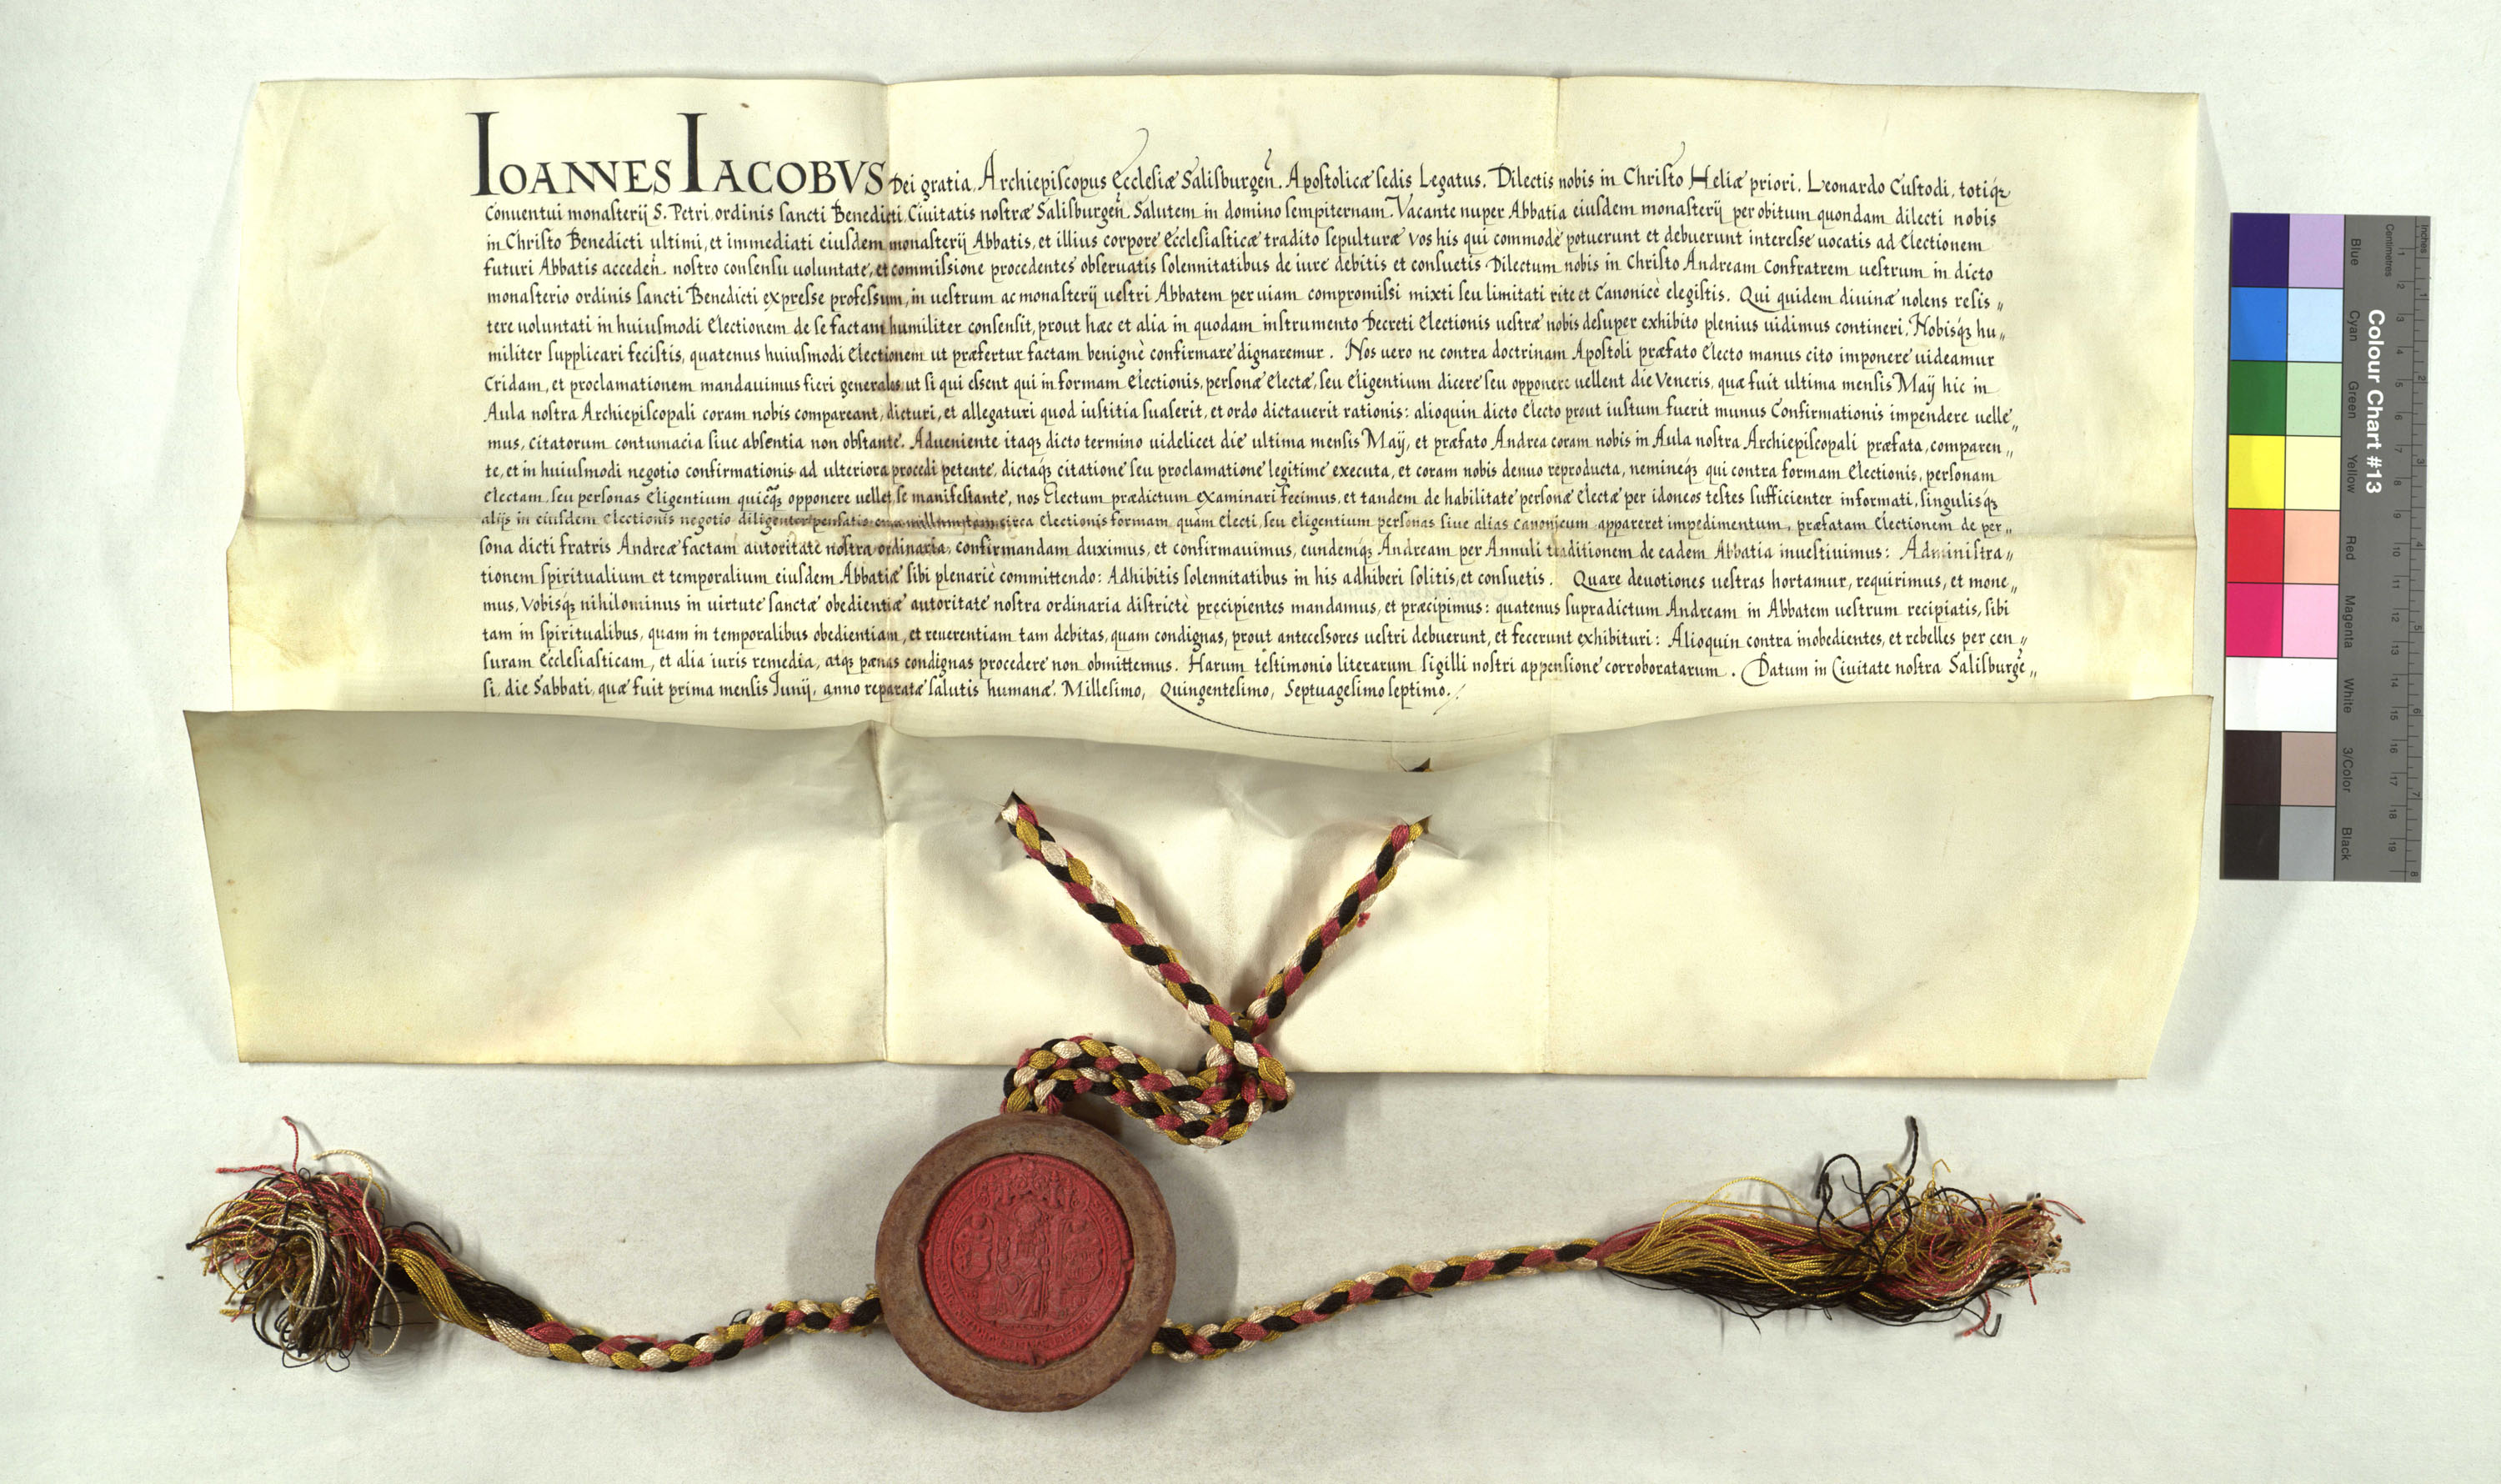 IOANNES IACOBVS Dei gratia Archiepiscopus Ecclesiæ Salisburgeñ. Apostolicæ sedis Legatus. Dilectis nobis in Christo Heliæ priori. Leonardo Custodi, totiq́ꝫ
Conuentui monasterij S. Petri ordinis sancti Benedicti Ciuitatis nostræ Salisburgeñ. Salutem in domino sempiternam. Vacante nuper Abbatia eiusdem monasterij per obitum quondam dilecti nobis
in Christo Benedicti ultimi, et immediati eiusdem monasterij Abbatis, et illius corpore Ecclesiasticæ tradito sepulturæ vos his qui commodè potuerunt et debuerunt interesse uocatis ad Electionem
futuri Abbatis accedeñ. nostro consensu uoluntate, et commissione procedentes obseruatis solennitatibus de iure debitis et consuetis Dilectum nobis in Christo Andream Confratrem uestrum in dicto
monasterio ordinis sancti Benedicti expresse professum, in uestrum ac monasterij uestri Abbatem per uiam compromissi mixti seu limitati rite et Canonicè elegistis. Qui quidem diuinæ nolens resis„
tere uoluntati in huiusmodi Electionem de se factam humiliter consensit, prout hæc et alia in quodam instrumento Decreti Electionis uestræ nobis desuper exhibito plenius uidimus contineri. Nobisq́ꝫ hu„
militer supplicari fecistis, quatenus huiusmodi Electionem ut præfertur factam benignè confirmare dignaremur. Nos uero ne contra doctrinam Apostoli præfato Electo manus cito imponere uideamur
Cridam, et proclamationem mandauimus fieri generales ut si qui essent qui in formam Electionis, personæ Electæ, seu Eligentium dicere seu opponere uellent die Veneris, quæ fuit ultima mensis Maij hic in
Aula nostra Archiepiscopali coram nobis compareant, dicturi, et allegaturi quod iustitia suaserit, et ordo dictauerit rationis: alioquin dicto Electo prout iustum fuerit munus Confirmationis impendere uelle„
mus, citatorum contumacia siue absentia non obstante. Adueniente itaqꝫ dicto termino uidelicet die ultima mensis Maij, et præfato Andrea coram nobis in Aula nostra Archiepiscopali præfata, comparen„
te, et in huiusmodi negotio confirmationis ad ulteriora procedi petente, dictaq́ꝫ citatione seu proclamatione legitime executa, et coram nobis denuo reproducta, nemineq́ꝫ qui contra formam Electionis, personam
Electam, seu personas Eligentium quicq̃ꝫ opponere uellet se manifestante, nos Electum prædictum examinari fecimus, et tandem de habilitate personæ Electæ per idoneos testes sufficienter informati, singulisq́ꝫ
alijs in eiusdem Electionis negotio diligenter pensatis cum nullum tam circa Electionis formam quàm Electi, seu Eligentium personas siue alias canonicum appareret impedimentum, præfatam Electionem de per„
sona dicti fratris Andreæ factam autoritate nostra ordinaria, confirmandam duximus, et confirmauimus, eundemq́ꝫ Andream per Annuli traditionem de eadem Abbatia inuestiuimus: Administra„
tionem spiritualium et temporalium eiusdem Abbatiæ sibi plenariè committendo: Adhibitis solennitatibus in his adhiberi solitis, et consuetis. Quare deuotiones uestras hortamur, requirimus, et mone„
mus, Vobisq́ꝫ nihilominus in uirtute sanctæ obedientiæ autoritate nostra ordinaria districtè precipientes mandamus, et præcipimus: quatenus supradictum Andream in Abbatem uestrum recipiatis, sibi
tam in spiritualibus, quam in temporalibus obedientiam, et reuerentiam tam debitas, quam condignas, prout antecessores uestri debuerunt, et fecerunt exhibituri: Alioquin contra inobedientes, et rebelles per cen„
suram Ecclesiasticam, et alia iuris remedia, atqꝫ pænas condignas procedere non obmittemus. Harum testimonio literarum sigilli nostri appensione corroboratarum. Datum in Ciuitate nostra Salisburgẽ„
si, die Sabbati, quæ fuit prima mensis Junij, anno reparatæ salutis humanæ. Millesimo, Quingentesimo, Septuagesimo septimo.
Colour Chart #13
Blue Cyan Green Yellow Red Magenta White 3/Color Black
Centimetres 1 2 3 4 5 6 7 8 9 10 11 12 13 14 15 16 17 18 19
Inches 1 2 3 4 5 6 7 8